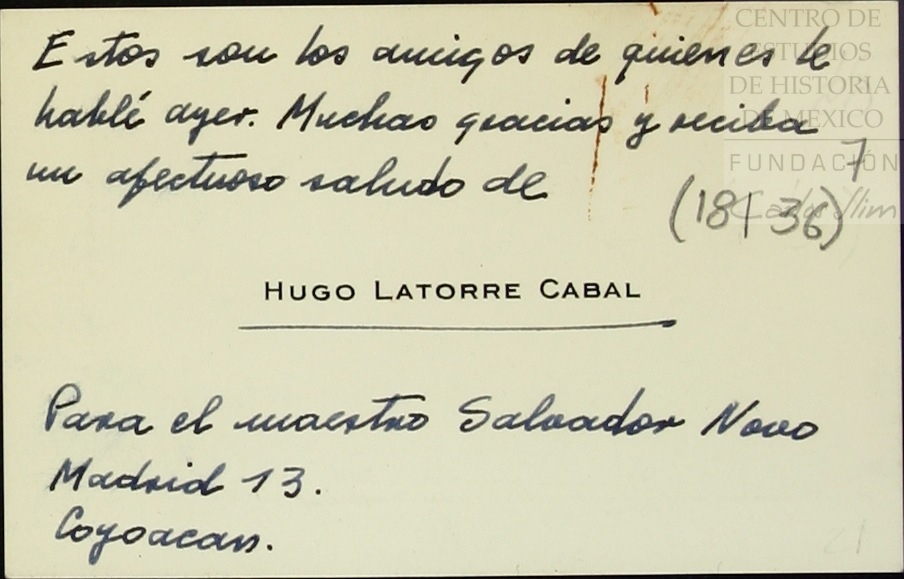 Estos son los amigos de quienes le
hablé ayer. Muchas gracias y reciba
un afectuoso saludo de
7
(18/36)
HUGO LATORRE CABAL
Para el maestro Salvador Novo
Madrid 13.
Coyoacan.
21
CENTRO DE
ESTUDIOS
DE HISTORIA
DE MEXICO
FUNDACIÓN
Carlos Slim